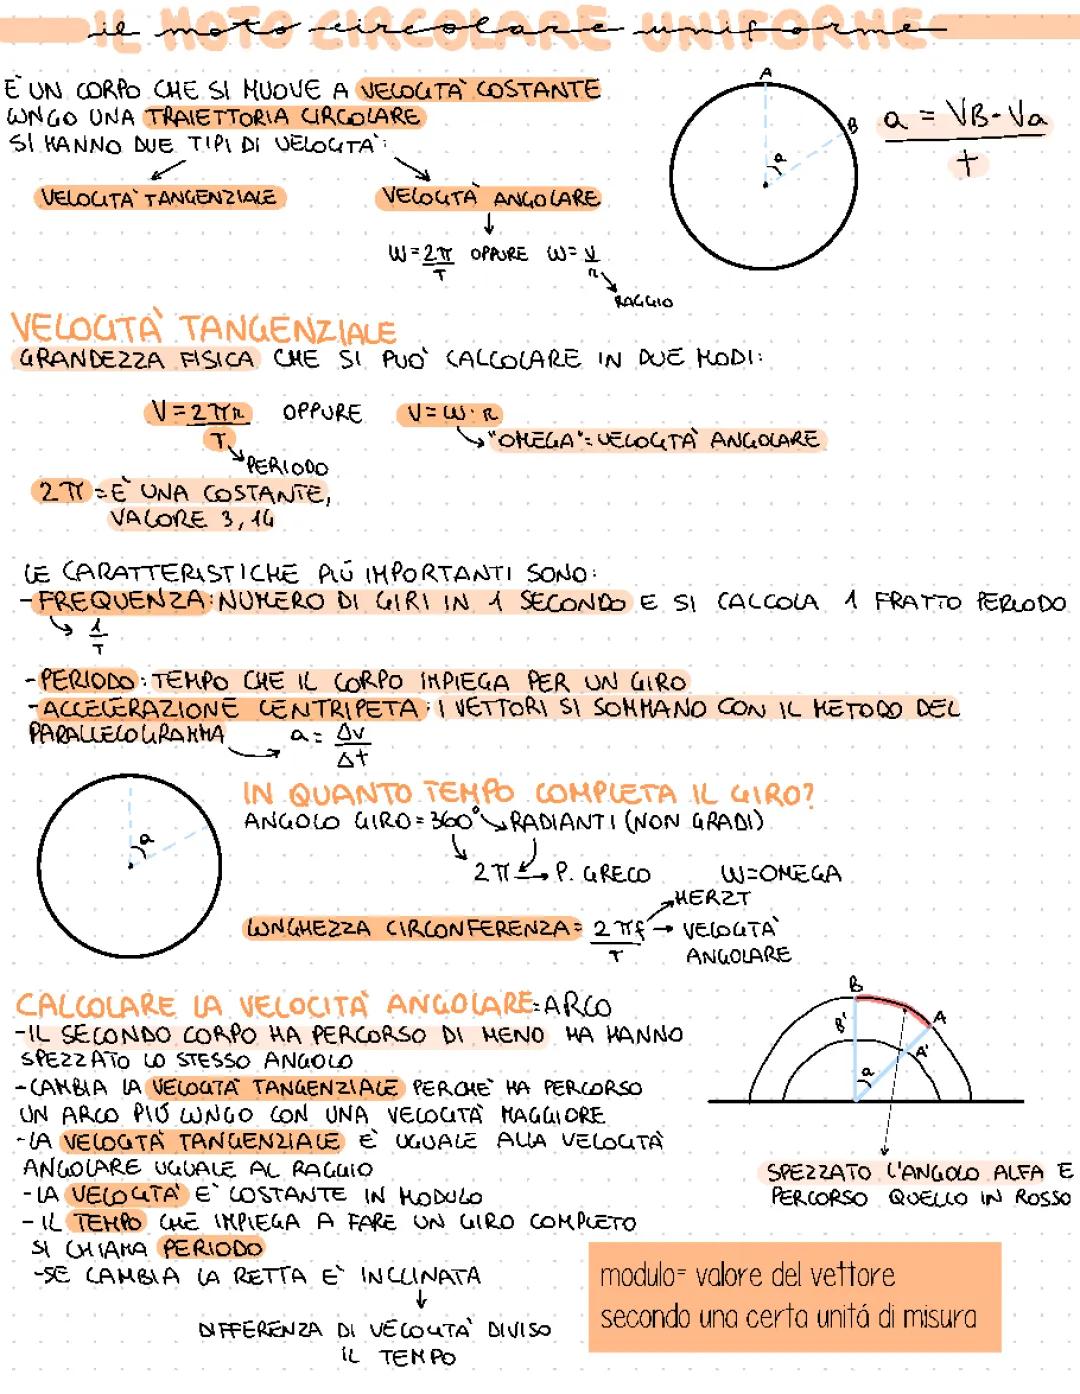 il moto circolare uniforme
È UN CORPO CHE SI MUOVE A VELOCITÀ COSTANTE
LUNGO UNA TRAIETTORIA CIRCOLARE
SI HANNO DUE TIPI DI VELOCITÀ:
VELOCITÀ TANGENZIALE
VELOCITÀ ANGOLARE
W=2π/T OPPURE W=V/r
RAGGIO
A
B
a
a = VB-Va
t
VELOCITÀ TANGENZIALE
GRANDEZZA FISICA CHE SI PUÒ CALCOLARE IN DUE MODI:
V=2πR/T OPPURE V=W·R
"OMEGA"=VELOCITÀ ANGOLARE
PERIODO
2π=È UNA COSTANTE,
VALORE 3,14
LE CARATTERISTICHE PIÙ IMPORTANTI SONO:
-FREQUENZA:NUMERO DI GIRI IN 1 SECONDO E SI CALCOLA 1 FRATTO PERIODO
1/T
-PERIODO:TEMPO CHE IL CORPO IMPIEGA PER UN GIRO
-ACCELERAZIONE CENTRIPETA:I VETTORI SI SOMMANO CON IL METODO DEL
PARALLELOGRAMMA a=Δv/Δt
a
IN QUANTO TEMPO COMPLETA IL GIRO?
ANGOLO GIRO=360° RADIANTI (NON GRADI)
2π P. GRECO W=OMEGA
HERZT
LUNGHEZZA CIRCONFERENZA=2πf/T VELOCITÀ
ANGOLARE
CALCOLARE LA VELOCITÀ ANGOLARE=ARCO
-IL SECONDO CORPO HA PERCORSO DI MENO MA HANNO
SPEZZATO LO STESSO ANGOLO
-CAMBIA LA VELOCITÀ TANGENZIALE PERCHÈ HA PERCORSO
UN ARCO PIÙ LUNGO CON UNA VELOCITÀ MAGGIORE
-LA VELOCITÀ TANGENZIALE È UGUALE ALLA VELOCITÀ
ANGOLARE UGUALE AL RAGGIO
-LA VELOCITÀ È COSTANTE IN MODULO
-IL TEMPO CHE IMPIEGA A FARE UN GIRO COMPLETO
SI CHIAMA PERIODO
-SE CAMBIA LA RETTA È INCLINATA
DIFFERENZA DI VELOCITÀ DIVISO
IL TEMPO
B
A
B'
A'
a
SPEZZATO L'ANGOLO ALFA E
PERCORSO QUELLO IN ROSSO
modulo= valore del vettore
secondo una certa unitá di misura